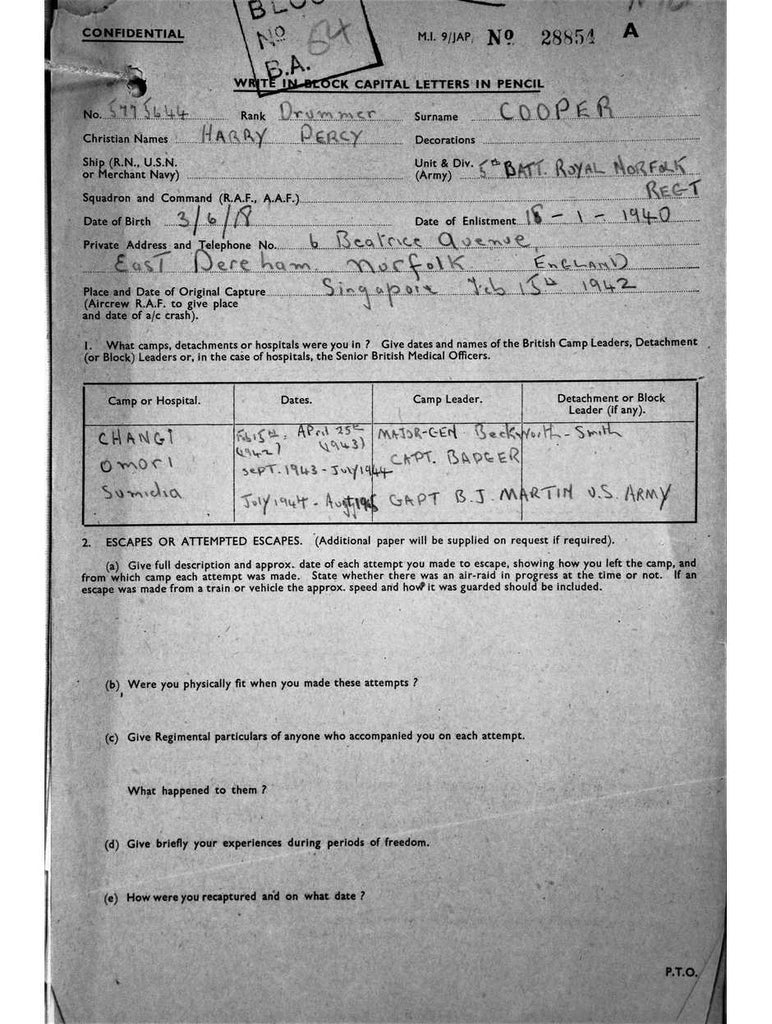 BLOC
No 64
B.A.
CONFIDENTIAL
M.I. 9/JAP. No 28854 A
WRITE IN BLOCK CAPITAL LETTERS IN PENCIL
No. 5775644 Rank Drummer Surname COOPER
Christian Names HARRY PERCY Decorations
Ship (R.N., U.S.N. or Merchant Navy) Unit & Div. (Army) 5th BATT. ROYAL NORFOLK
REGT
Squadron and Command (R.A.F., A.A.F.)
Date of Birth 3/6/18 Date of Enlistment 18 - 1 - 1940
Private Address and Telephone No. 6 Beatrice Avenue,
East Dereham Norfolk ENGLAND
Place and Date of Original Capture Singapore Feb 15th 1942
(Aircrew R.A.F. to give place
and date of a/c crash).
1. What camps, detachments or hospitals were you in ? Give dates and names of the British Camp Leaders, Detachment
(or Block) Leaders or, in the case of hospitals, the Senior British Medical Officers.
Camp or Hospital. Dates. Camp Leader. Detachment or Block
Leader (if any).
CHANGI Feb 15th. April 25th MAJOR-GEN Beckworth-Smith
(1942) (1943)
OMORI Sept. 1943 - July 1944 CAPT. BADGER
Sumidia July 1944 - Aug 1945 CAPT B.J. MARTIN U.S. ARMY
2. ESCAPES OR ATTEMPTED ESCAPES. (Additional paper will be supplied on request if required).
(a) Give full description and approx. date of each attempt you made to escape, showing how you left the camp, and
from which camp each attempt was made. State whether there was an air-raid in progress at the time or not. If an
escape was made from a train or vehicle the approx. speed and how it was guarded should be included.
(b) Were you physically fit when you made these attempts ?
(c) Give Regimental particulars of anyone who accompanied you on each attempt.
What happened to them ?
(d) Give briefly your experiences during periods of freedom.
(e) How were you recaptured and on what date ?
P.T.O.